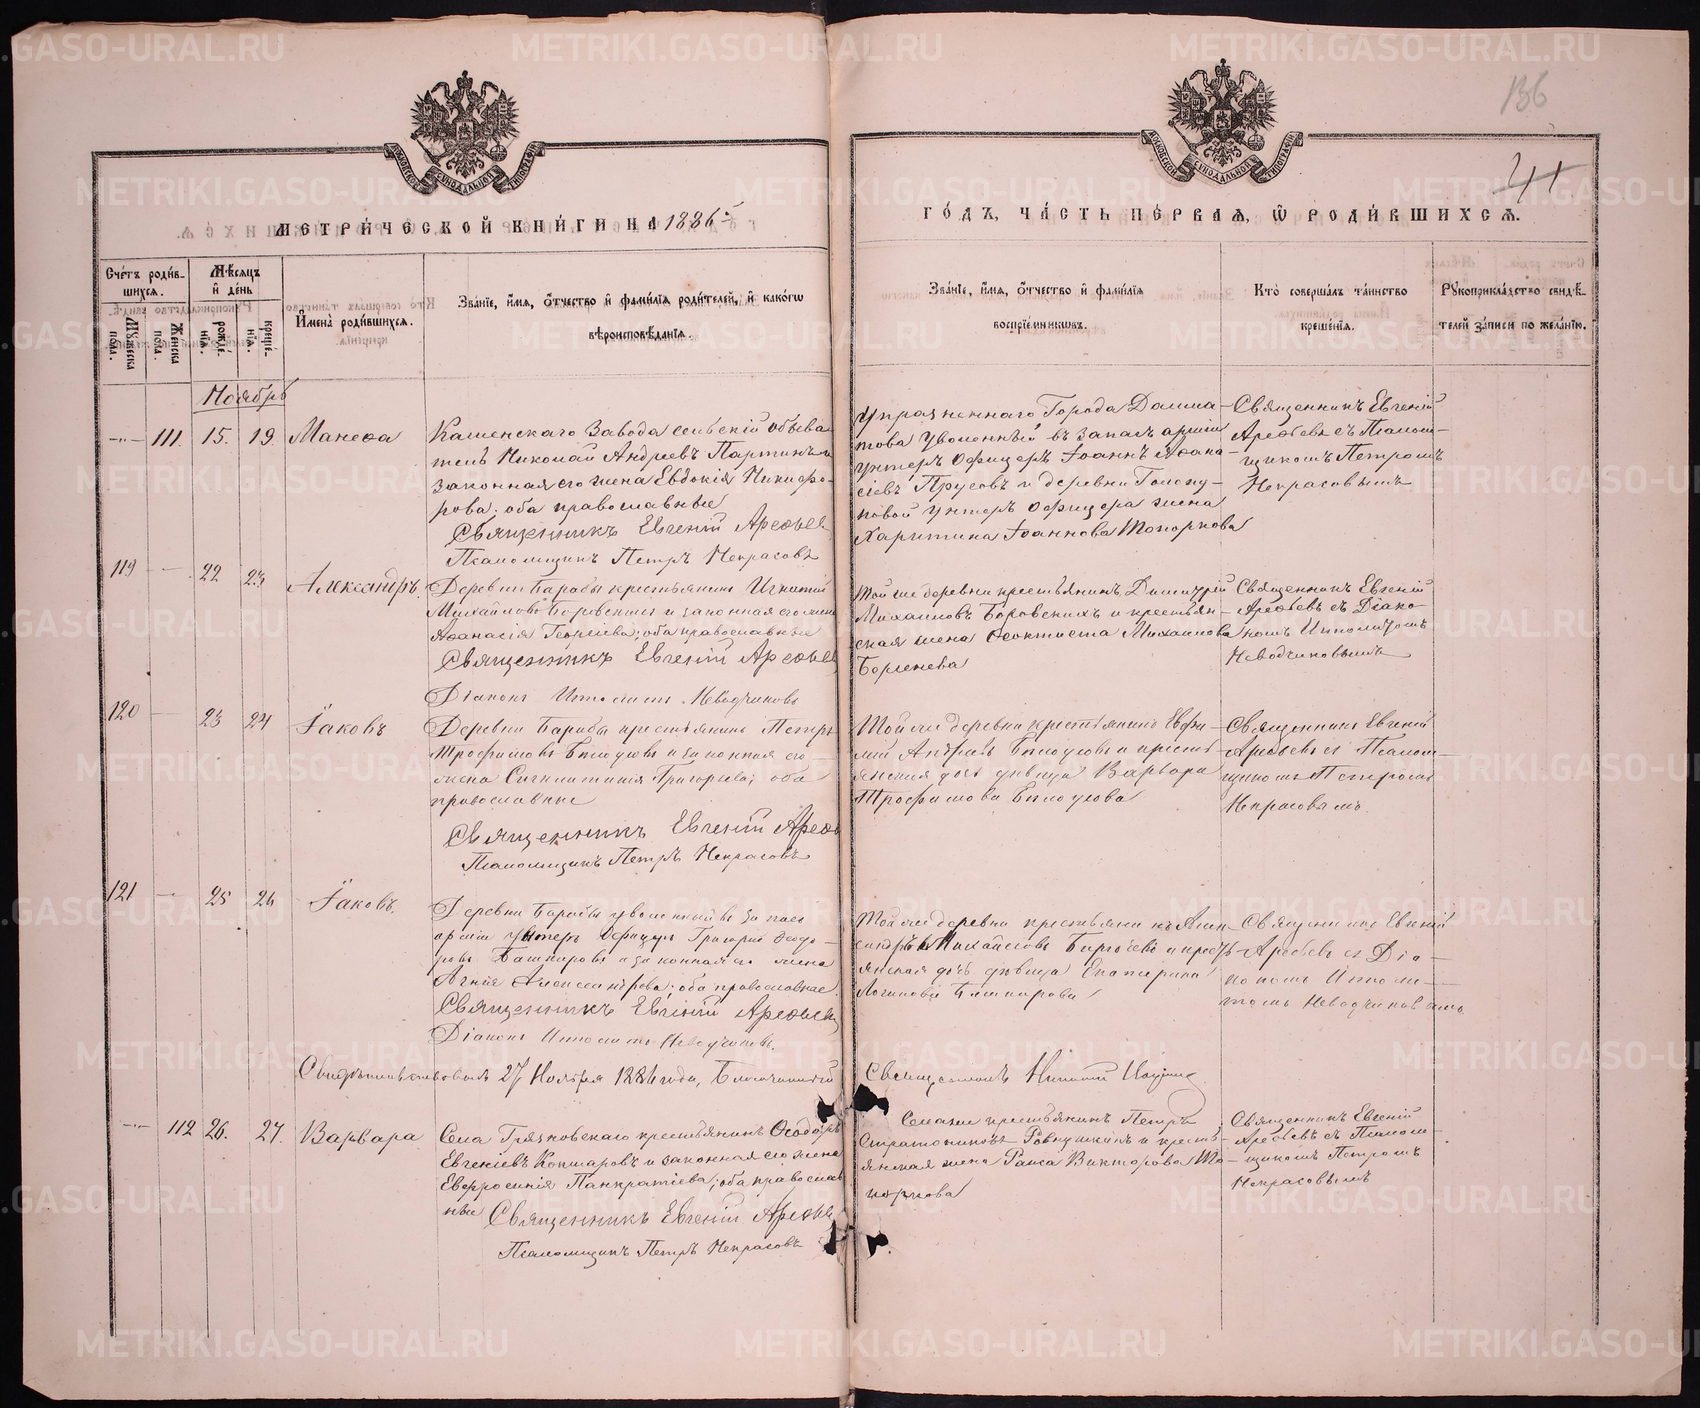 136
41
МЕТРИ́ЧЕСКОЙ КНИ́ГИ НА 1886
ГО́ДЪ, ЧА́СТЬ ПЕ́РВАѦ, Ѽ РОДИ́ВШИХСѦ.
Сче́тъ роди́в-
шихсѧ.
Мѣ́сѧцъ
и҆ де́нь
Мꙋ́жеска
по́ла.
Же́нска
по́ла.
рожде́-
нїѧ.
креще́-
нїѧ.
И҆мена̀ роди́вшихсѧ.
Зва́нїе, и҆́мѧ, ѻ҆́тчество и҆ фами́лїѧ роди́телей, и҆ како́гѡ
вѣроисповѣ́данїѧ.
Зва́нїе, и҆́мѧ, ѻ҆́тчество и҆ фами́лїѧ
воспрїе́мникѡвъ.
Кто̀ соверша́лъ та́инство
креще́нїѧ.
Рꙋкоприкла́дство свидѣ́-
телей за́писи по жела́нїю.
Ноябрь
111. 15. 19. Манефа
Каменскаго Завода сельскій обыва-
тель Николай Андреевъ Партинъ и
законная его жена Евдокія Никифо-
рова; оба православные
Священникъ Евгеній Арефьев
Псаломщикъ Петръ Некрасовъ
Упраздненнаго Города Далма-
това уволенный въ запасъ арміи
унтеръ офицеръ Іоаннъ Афана-
сіевъ Прусовъ и деревни
унтеръ офицера жена
Харитина Іоаннова Топоркова
Священникъ Евгеній
Арефьевъ съ Псалом-
щикомъ Петромъ
Некрасовымъ
119 22 23 Александръ.
Деревни Барабы крестьянинъ Игнатій
Михайловъ и законная его жена
Афанасія Георгіева; оба православные
Священникъ Евгеній Арефьев
Діаконъ Ипполитъ Неводчиковъ
Той же деревни крестьянинъ Димитрій
Михаиловъ Боровскихъ и крестьян-
ская жена Феоктиста Михаилова
Священникъ Евгеній
Арефьевъ съ Діако-
номъ Ипполитомъ
Неводчиковымъ
120 23 24 Іаковъ
Деревни Барабы крестьянинъ Петръ
Трофимовъ и законная его
жена Синклитикія Григорьева; оба
православные
Священникъ Евгеній Арефь
Псаломщикъ Петръ Некрасовъ
Той же деревни крестьянинъ Евфи-
мій и кресть-
янская дочь дѣвица Варвара
Трофимова
Священникъ Евгеній
Арефьевъ съ Псалом-
щикомъ Петромъ
Некрасовымъ.
121 25 26 Іаковъ.
Деревни Барабы уволенный въ запасъ
арміи унтеръ офицеръ Григорій Феодо-
ровъ Башкировъ и законная его жена
Агнія Александрова; оба православные.
Священникъ Евгеній Арефьев
Діаконъ Ипполитъ Неводчиковъ.
Той же деревни крестьянинъ Алек-
сандръ Михайловъ и кресть-
янская дочь дѣвица Екатерина
Логинова Башкирова
Священникъ Евгеній
Арефьевъ съ Діа-
кономъ Ипполи-
томъ Неводчиковымъ
Свидѣтельствовалъ 27 Ноября 1886 года, Благочинный
Священникъ
112 26. 27. Варвара
Села Грязновскаго крестьянинъ Феодоръ
Евгеніевъ Кокшаровъ и законная его жена
Евфросинія Панкратіева; оба православ-
ные Священникъ Евгеній Арефьев
Псаломщикъ Петръ Некрасовъ
Села же крестьянинъ Петръ
Стратониковъ и кресть-
янская жена Раиса Викторова То-
поркова
Священникъ Евгеній
Арефьевъ съ Псалом-
щикомъ Петромъ
Некрасовымъ
METRIKI.GASO-URAL.RU